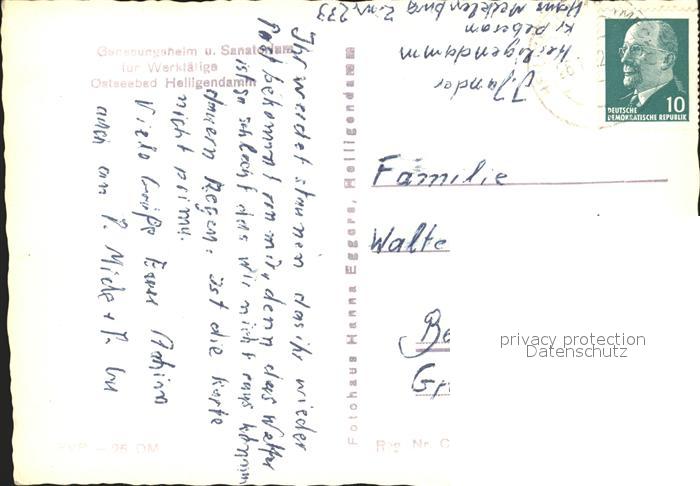 Genesungsheim u. Sanatorium
für Werktätige
Ostseebad Heiligendamm
Ihr werdet staunen das ihr wieder
Post bekommt von mir, denn das Wetter
ist so schlecht das wir nicht raus können
dauern Regen. ist die Karte
nicht prima.
Viele Grüße Euer Achim
auch an P. Mick + P.
Fotohaus Hanna Eggers, Heiligendamm
Heiligendamm
Kr. Doberan
Haus Mecklenburg Z. nr. 233
DEUTSCHE
DEMOKRATISCHE REPUBLIK
10
Familie
Walte
Be
privacy protection
Datenschutz
Reg. Nr. C
EVP – 25 DM